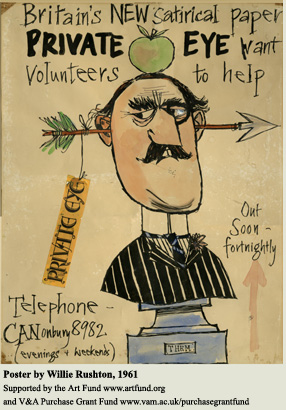 Britain's NEW satirical paper
PRIVATE EYE want
volunteers to help
PRIVATE EYE
Out
Soon -
fortnightly
Telephone -
CANonbury 8982
(evenings + weekends)
THEM
Poster by Willie Rushton, 1961
Supported by the Art Fund www.artfund.org
and V&A Purchase Grant Fund www.vam.ac.uk/purchasegrantfund